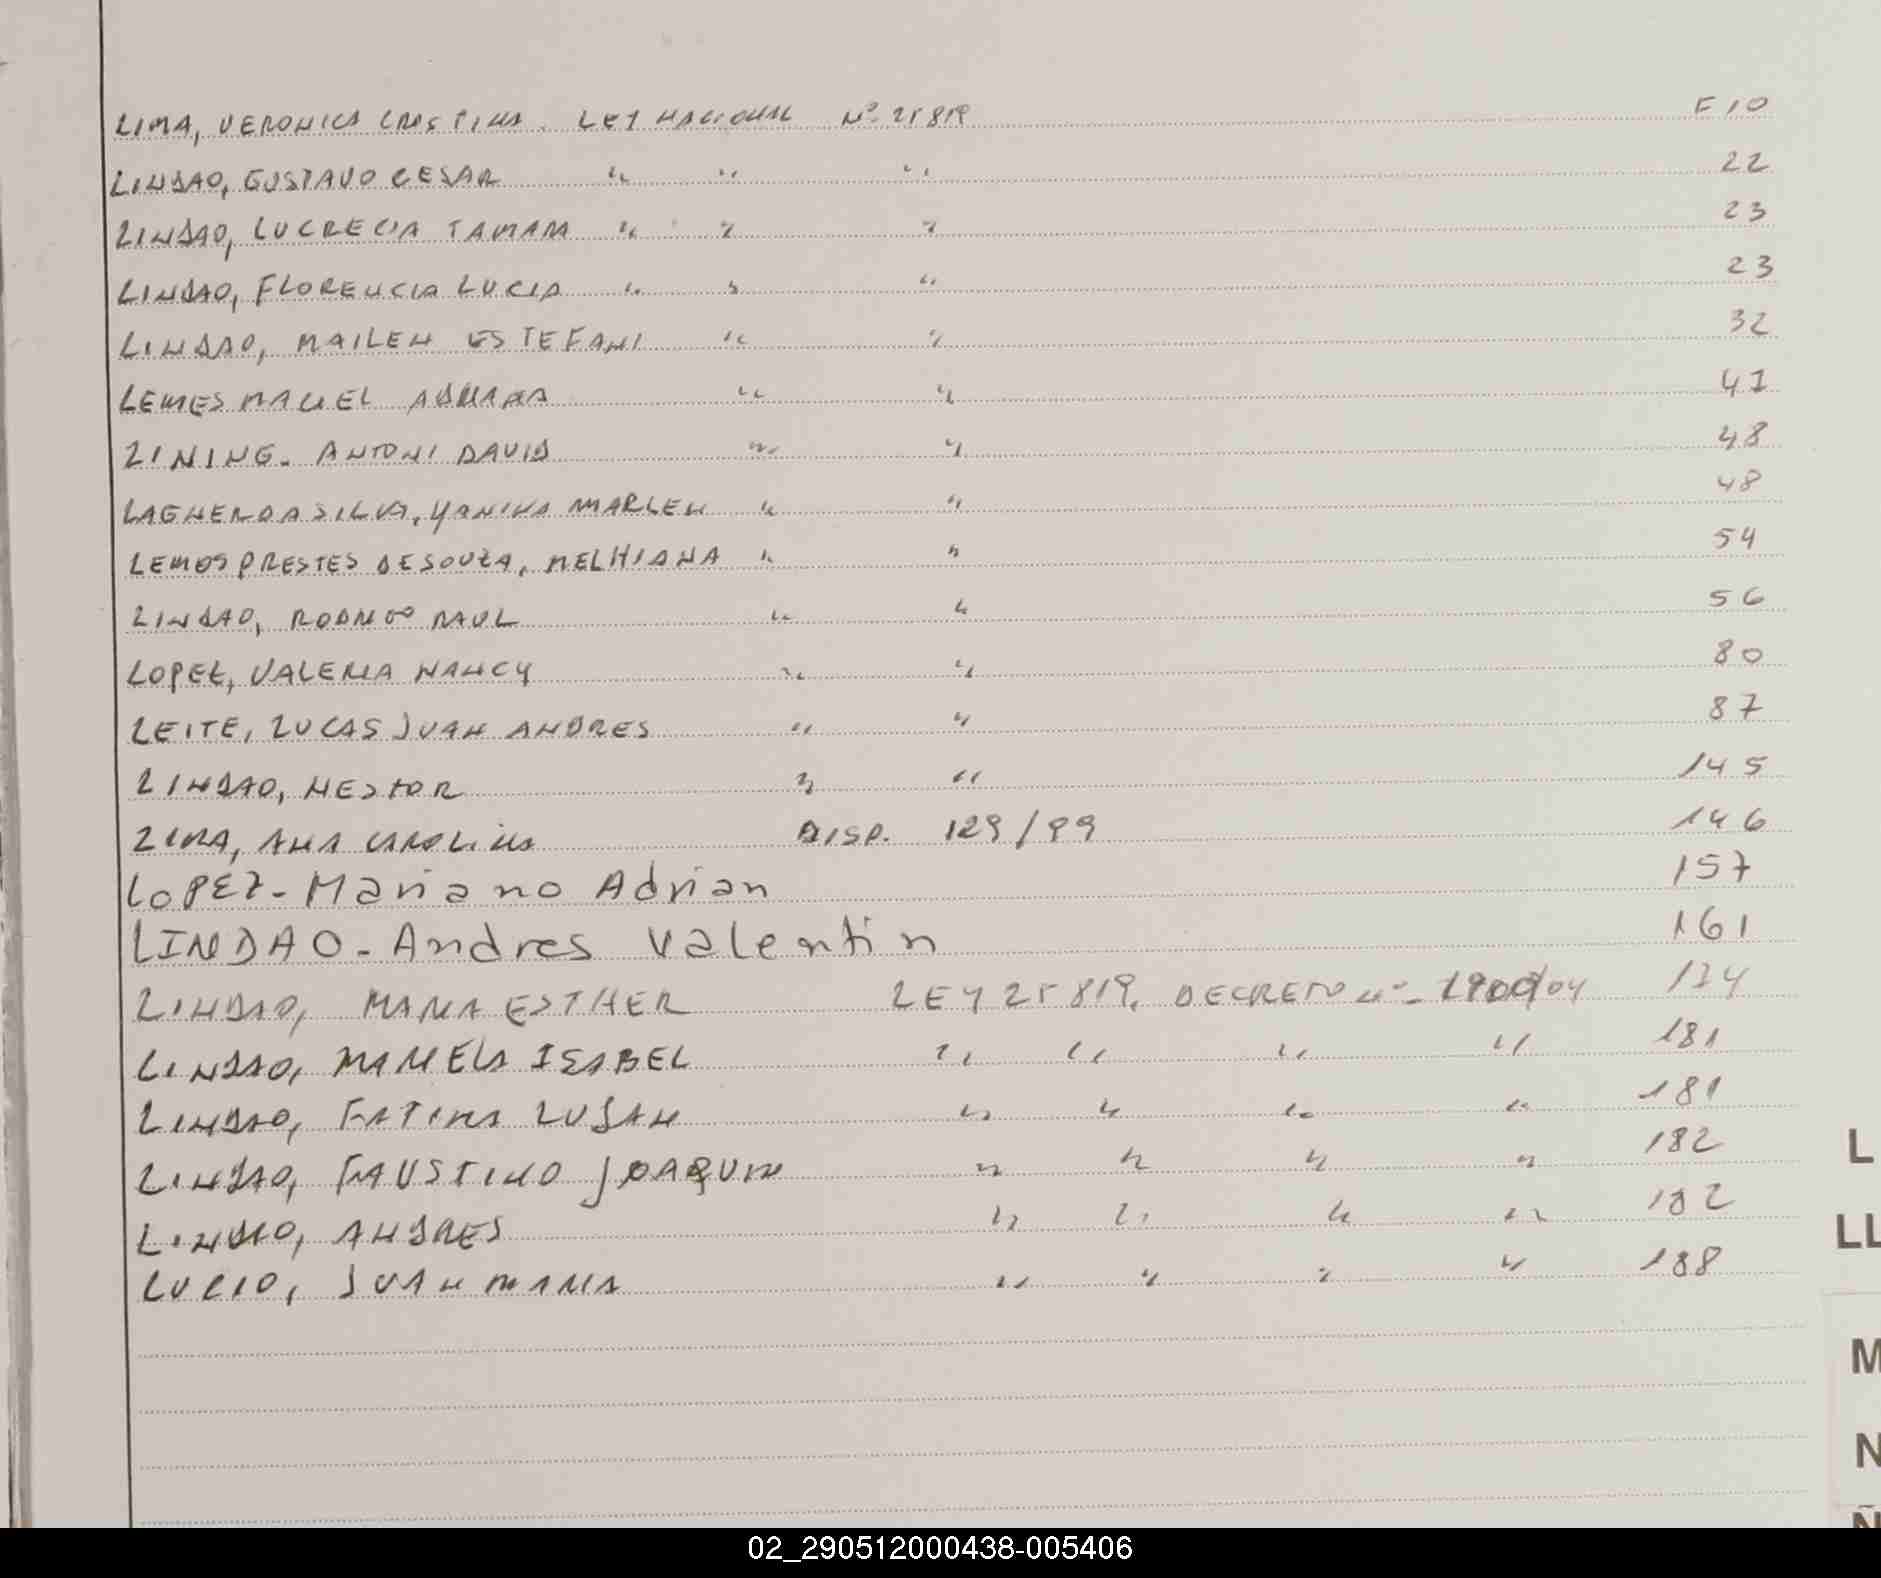 LIMA, VERONICA CRISTINA. LEY NACIONAL Nº 25819 F 10
LINDAO, GUSTAVO CESAR " " " 22
LINDAO, LUCRECIA TAMARA " " " 23
LINDAO, FLORENCIA LUCIA " " " 23
LINDAO, MAILEN ESTEFANI " " 32
LEMES MACIEL ADRIANA " " 41
LINING. ANTONI DAVID " " 48
LAGHER DA SILVA, YANINA MARLEN " " 48
LEMOS PRESTES DE SOUZA, MELHIANA " " 54
LINDAO, RODRIGO RAUL " " 56
LOPEZ, VALERIA NANCY " " 80
LEITE, LUCAS JUAN ANDRES " " 87
LINDAO, NESTOR " " 145
LIMA, ANA CAROLINA DISP. 129/99 146
LOPEZ-Mariano Adrian 157
LINDAO-Andres Valentin 161
LINDAO, MARIA ESTHER LEY 25819, DECRETO Nº- 174
LINDAO, MARIELA ISABEL " " " " 181
LINDAO, FATIMA LUJAN " " " " 181
LINDAO, FAUSTINO JOAQUIN " " " " 182
LINDAO, ANDRES " " " " 182
LUCIO, JUAN MARIA " " " " 188
L
LL
M
N
Ñ
02_290512000438-005406